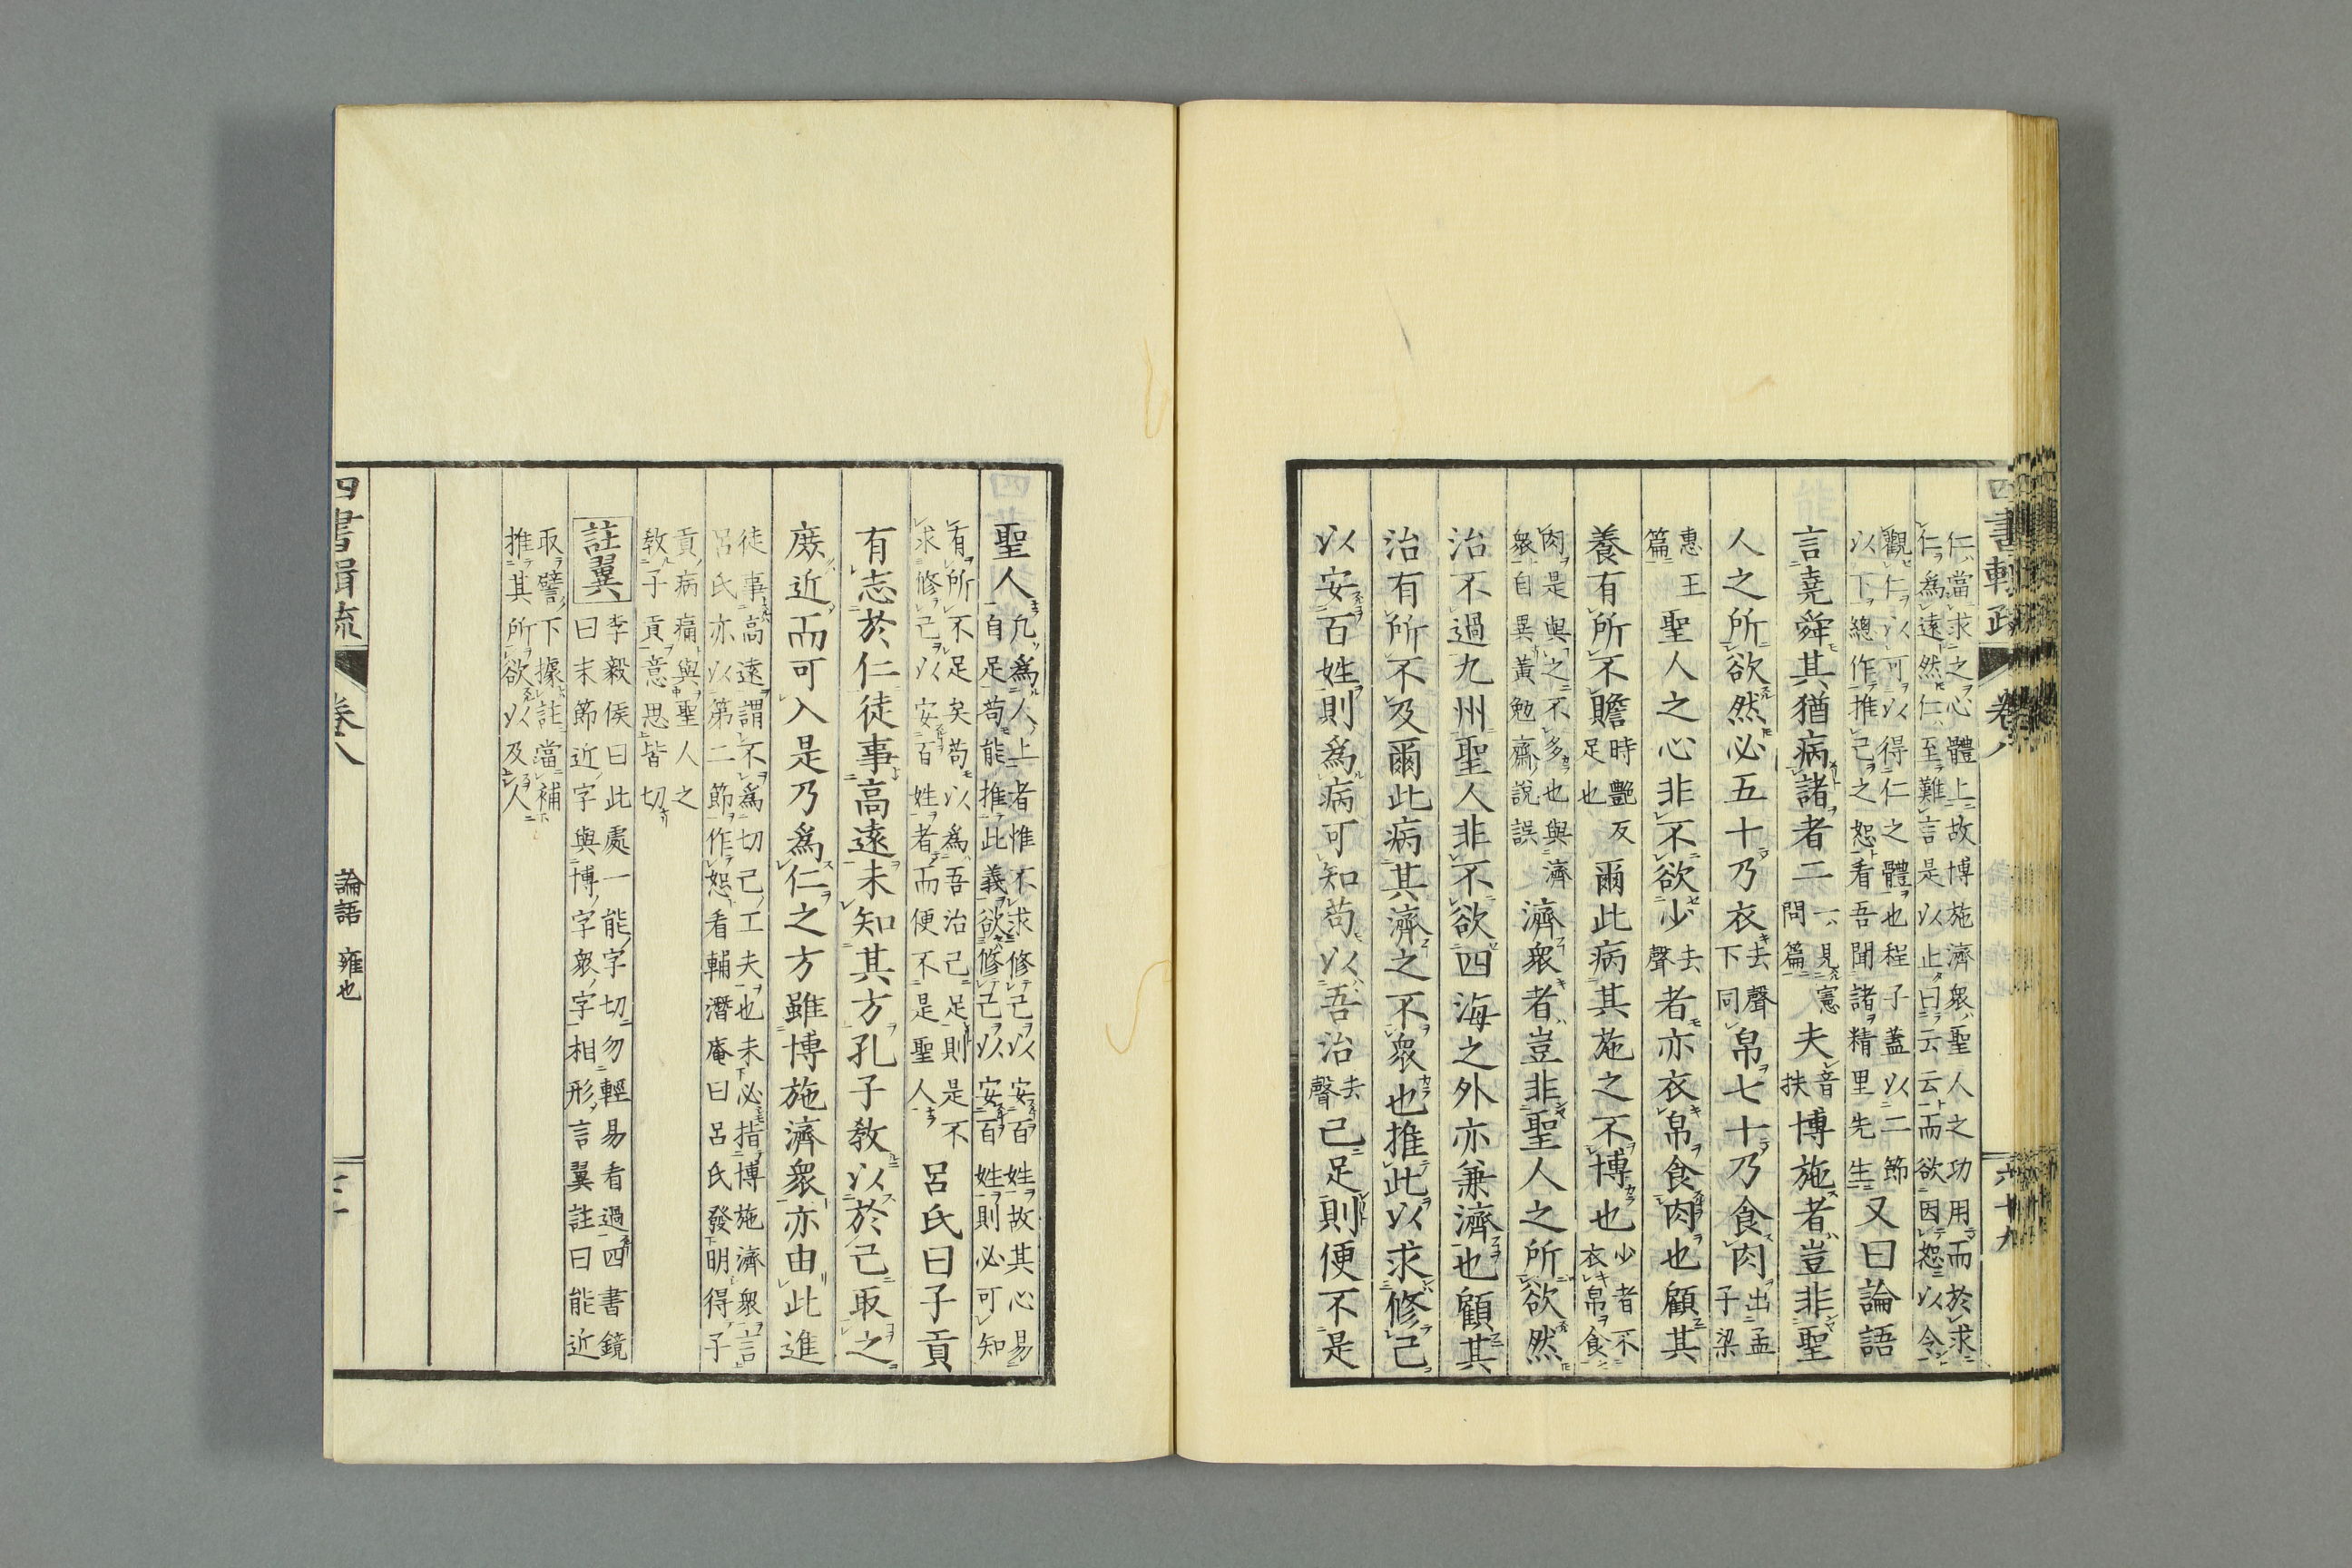 仁當求之心體上故博施濟衆聖人之功用而於求
仁爲遠然仁至難言是以止曰云云而欲因恕以令
觀仁以可以得仁之體也程子蓋以二節
以下總作推己之恕看吾聞諸精里先生
又曰論語
言堯舜其猶病諸者二
一見憲
問篇
夫
音
扶
博施者豈非聖
人之所欲然必五十乃衣
去聲
下同
帛七十乃食肉
出孟
子梁
惠王
篇
聖人之心非不欲少
去
聲
者亦衣帛食肉也顧其
養有所不贍
時艷反
足也
爾此病其施之不博也
少者不
衣帛食
肉是與之不多也與濟
衆自異黃勉齋說誤
濟衆者豈非聖人之所欲然
治不過九州聖人非不欲四海之外亦兼濟也顧其
治有所不及爾此病其濟之不衆也推此以求修己
以安百姓則爲病可知苟以吾治
去
聲
己足則便不是
四書輯疏
卷八
六十九
聖人
凡爲人上者惟不求修己以安百姓故其心易
自足苟能推此義欲修己以安百姓則必可知
有所不足矣苟以爲吾治己足則是不
求修己以安百姓者而便不是聖人
呂氏曰子貢
有志於仁徒事高遠未知其方孔子教以於己取之
庶近而可入是乃爲仁之方雖博施濟衆亦由此進
徒事高遠謂不爲切己工夫也未必指博施濟衆言
呂氏亦以第二節作恕看輔潛庵曰呂氏發明得子
貢病痛與聖人之
教子貢意思皆切
註翼
李毅侯曰此處一能字切勿輕易看過四書鏡
曰末節近字與博字衆字相形言翼註曰能近
取譬下據註當補
推其所欲以及人
四書輯疏
卷八
論語 雍也